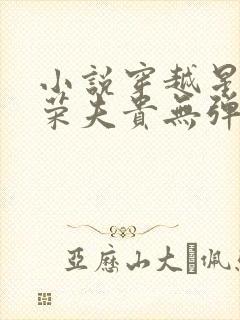 小說穿越星
荣夫貴無彈
亞歷山大佩